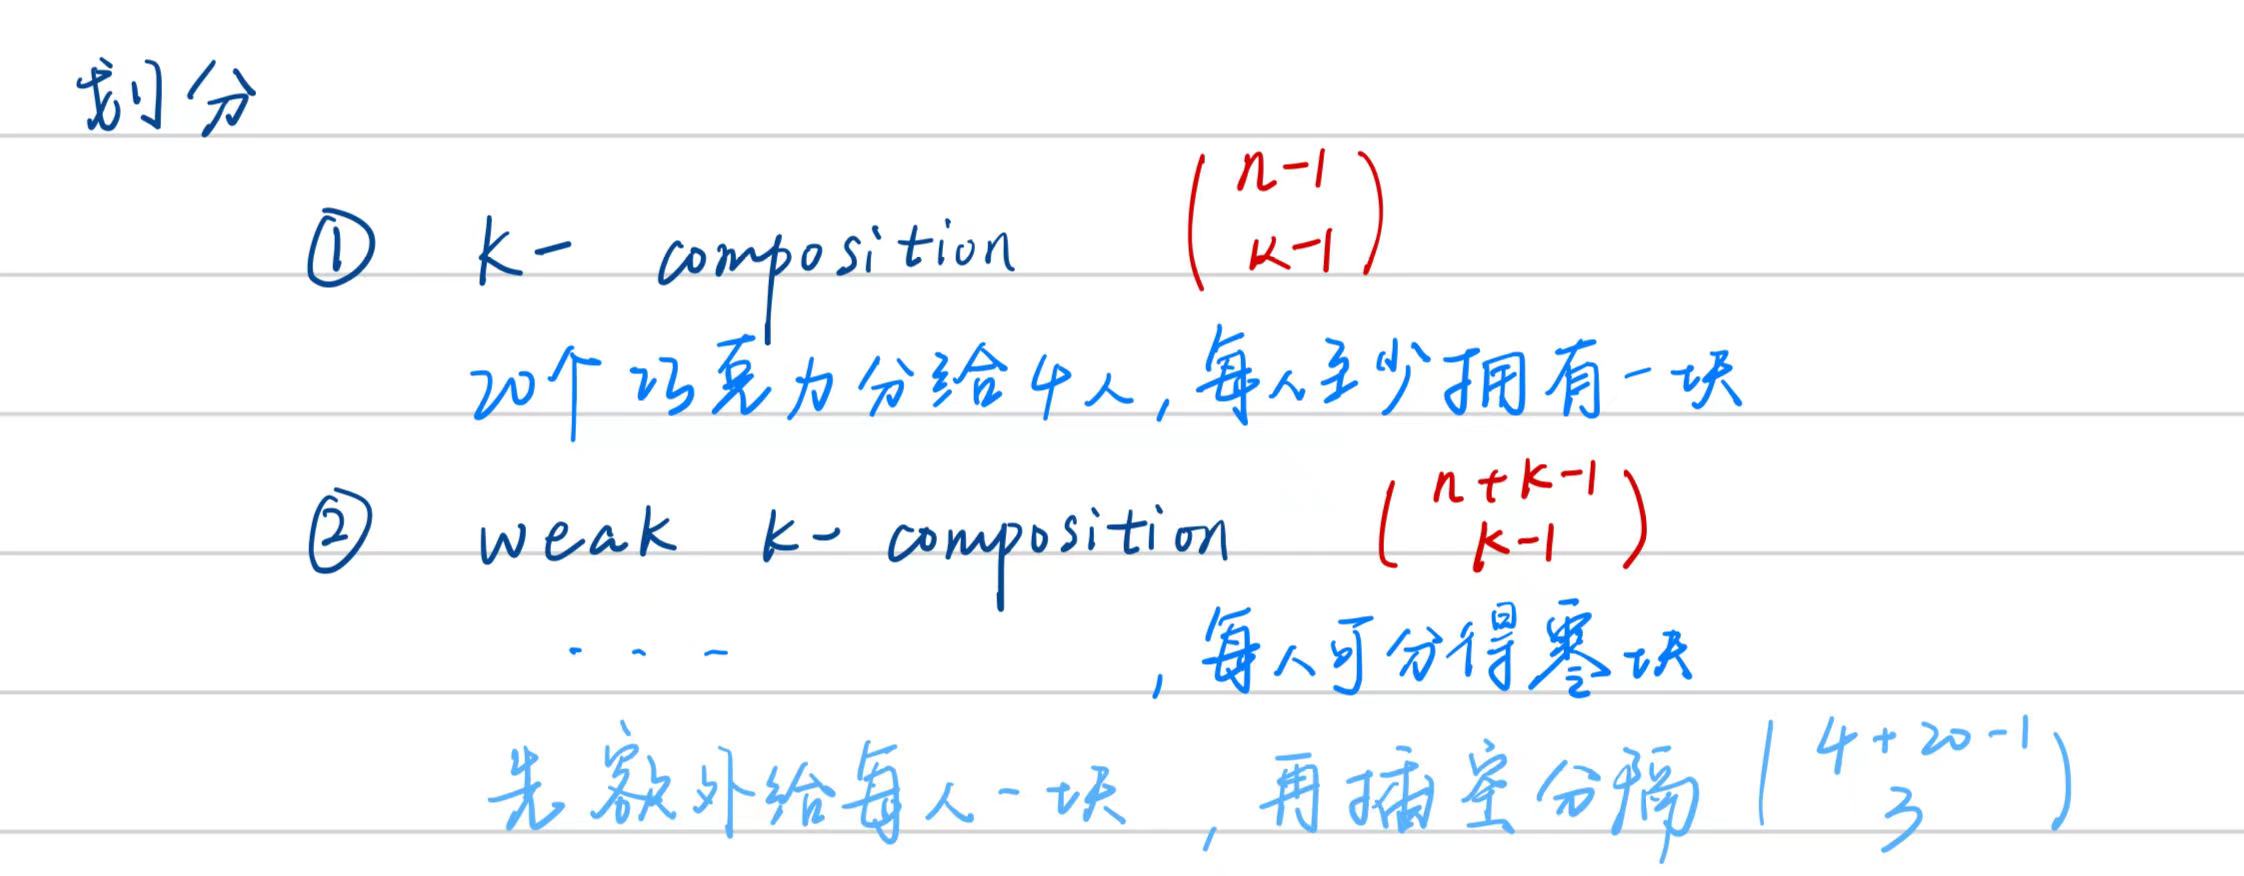 划分
① k- composition (n-1 k-1)
20个巧克力分给4人,每人至少拥有一块
② weak k- composition (n+k-1 k-1)
... ,每人可分得零块
先额外给每人一块,再插空分隔 (4+20-1 3)